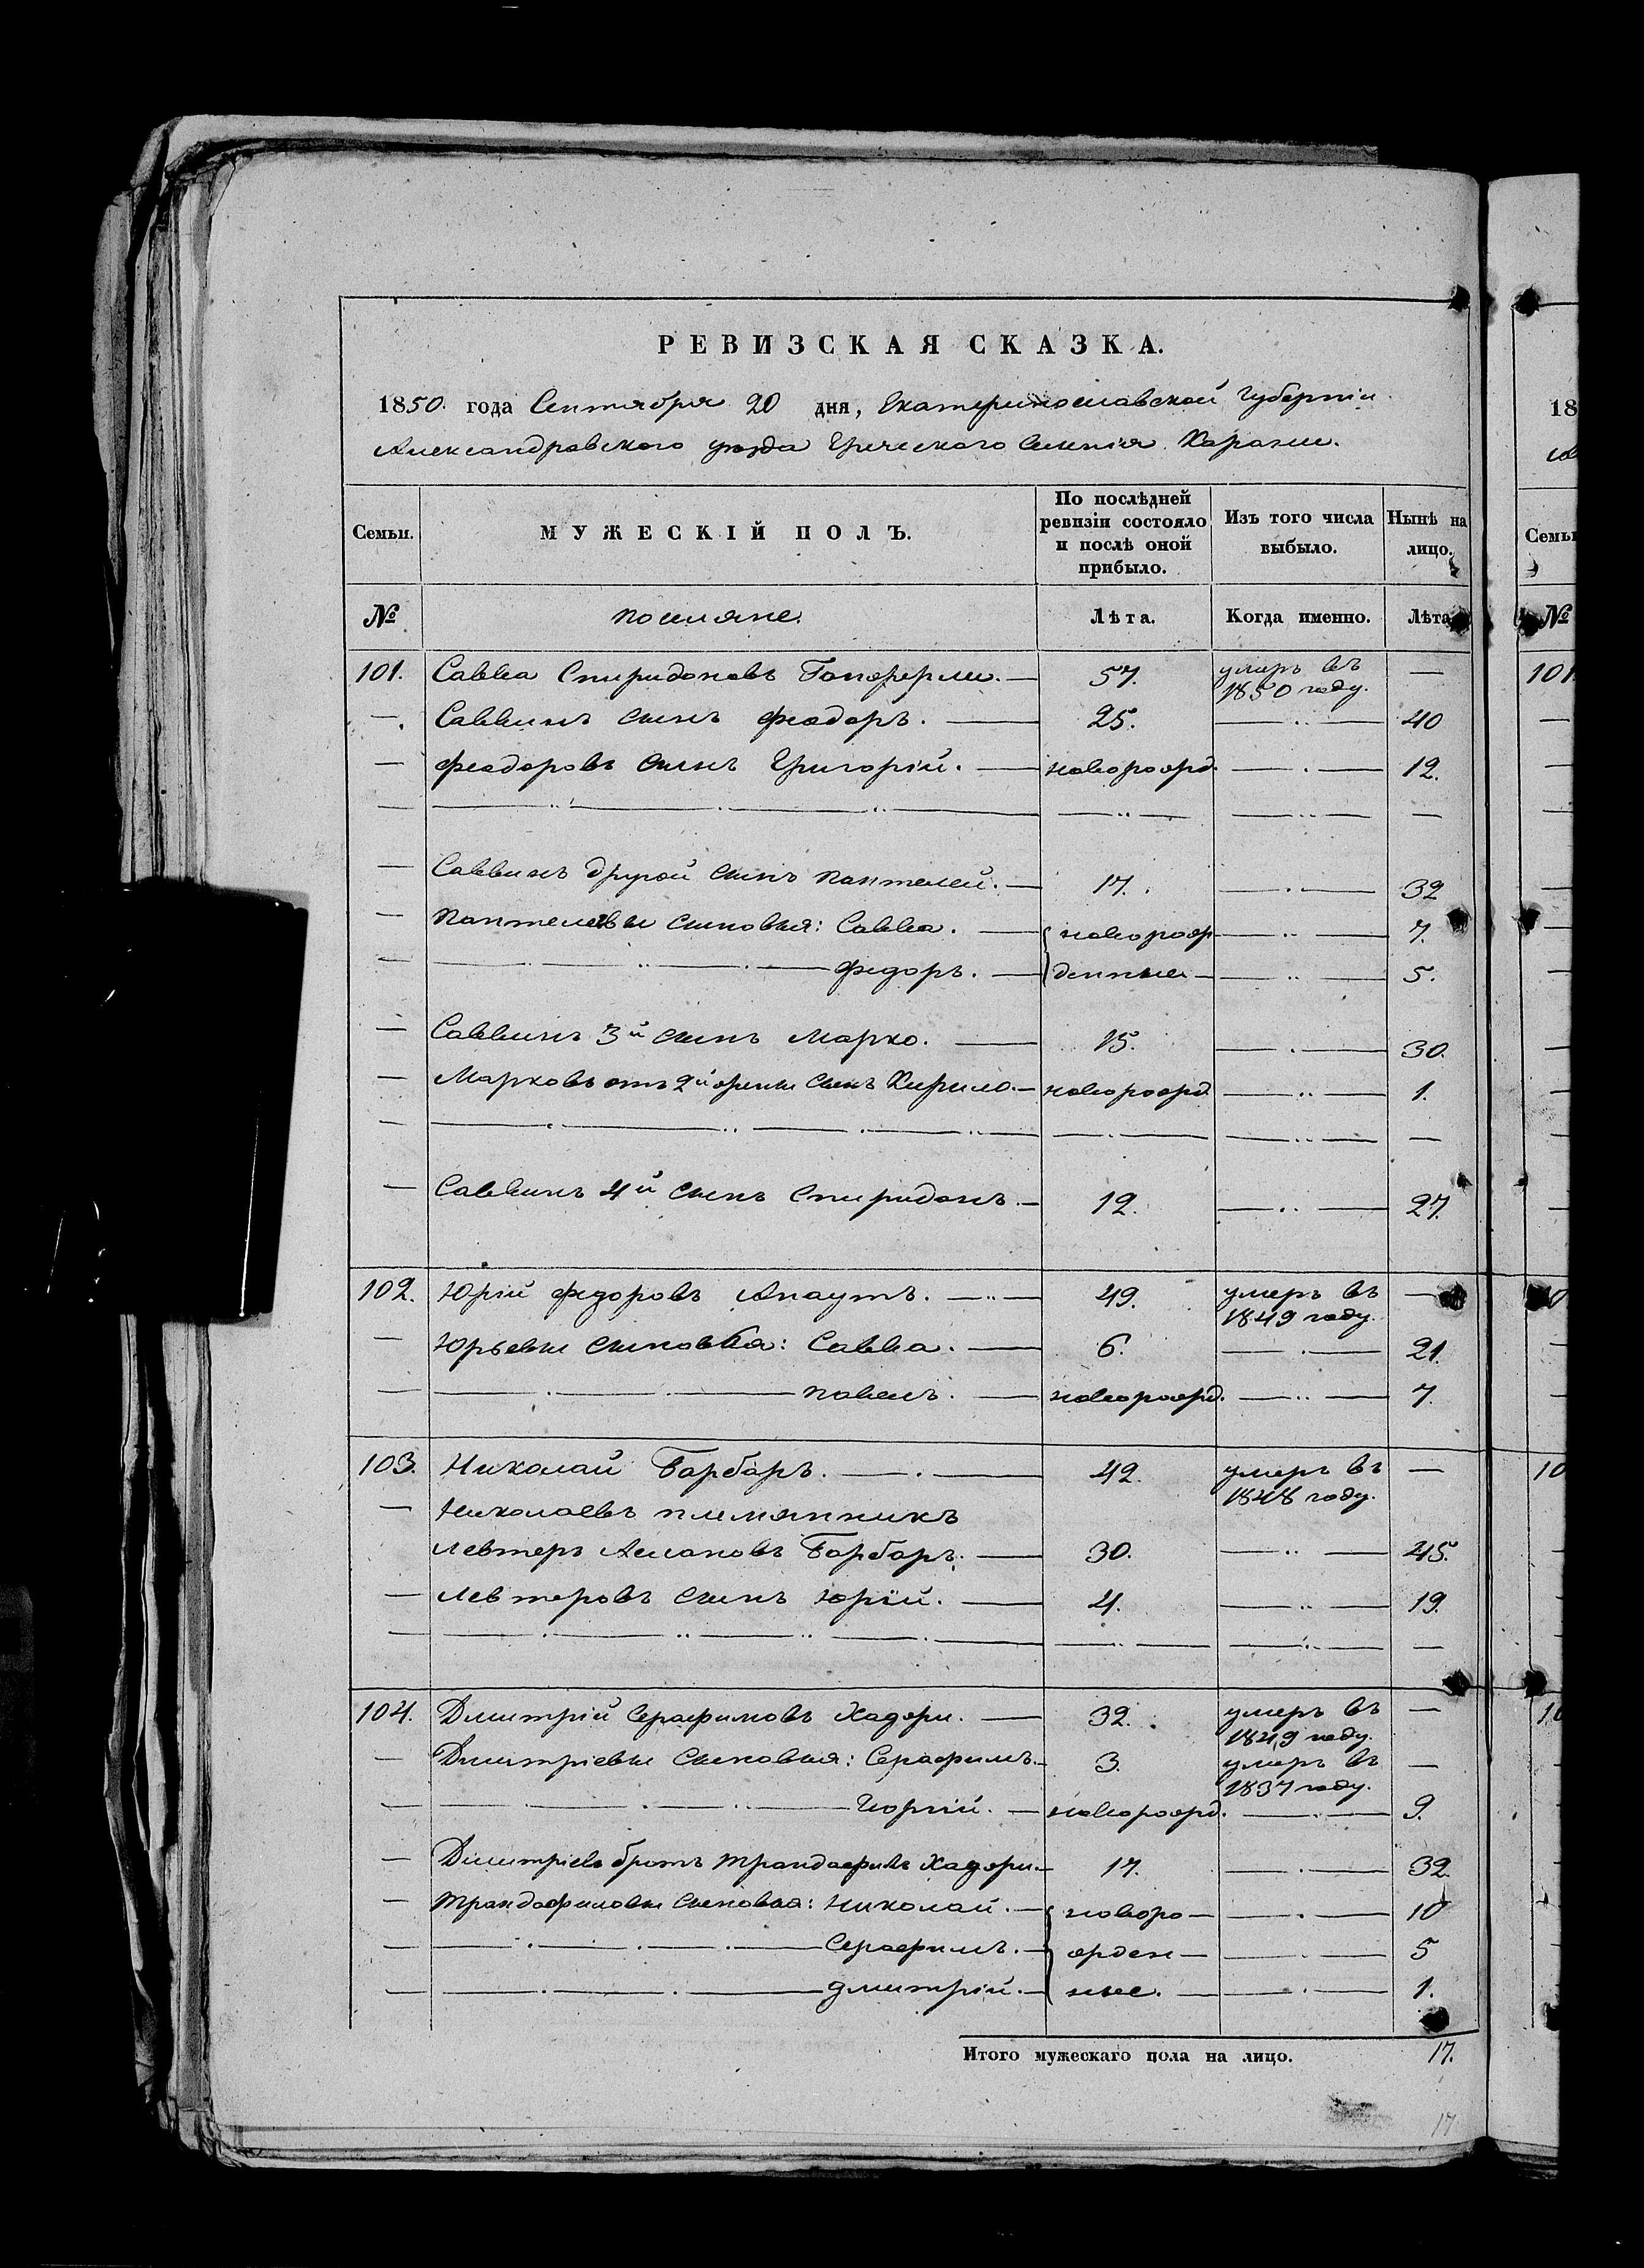 РЕВИЗСКАЯ СКАЗКА.
1850. года Сентября 20 дня, Екатеринославской Губерніи
Александровского уезда Греческого Селенія Карани.
Семьи. МУЖЕСКІЙ ПОЛЪ. По послѣдней ревизіи состояло и послѣ оной прибыло. Изъ того числа выбыло. Нынѣ на лицо.
№ поселяне. Лѣта. Когда именно. Лѣта
101. Савва Спиридоновъ 57. умеръ въ 1850 году. —
— Саввинъ сынъ Феодоръ. — 25. — 40
— Феодоровъ сынъ Григорій. — новорожд. — 12.
— Саввинъ другой сынъ Пантелей. — 17. — 32
— Пантелеевы сыновья: Савва. — новорож — 7.
— Федоръ. — денные — 5.
— Саввинъ 3й сынъ Марко. — 15. — 30.
— Марковъ отъ 2й жены сынъ Кирило. — новорожд — 1.
— Саввинъ 4й сынъ Спиридонъ. — 12. — 27.
102. Юрій Федоровъ Анаутъ. — 49. умеръ въ 1849 году. —
— Юрьевы сыновья: Савва. — 6. — 21.
— Павелъ. — новорожд. — 7.
103. Николай Барбаръ. — 42. умеръ въ 1848 году. —
— Николаевъ племянникъ
Левтеръ Аслановъ Барбаръ. — 30. — 45.
— Левтеровъ сынъ Юрій. — 4. — 19.
104. Дмитрій Серафимовъ Хаджи. — 32. умеръ въ 1849 году. —
— Дмитріевы сыновья: Серафимъ. — 3. умеръ въ 1837 году. —
— Георгій. — новорожд. — 9.
— Дмитріевъ братъ Трандафилъ Хаджи — 17. — 32.
— Трандафиловы сыновья: Николай. — новоро — 10
— Серафимъ. — жден — 5
— Дмитрій. — ные. — 1.
Итого мужескаго пола на лицо. 17.
17
18
Семьи
№
101